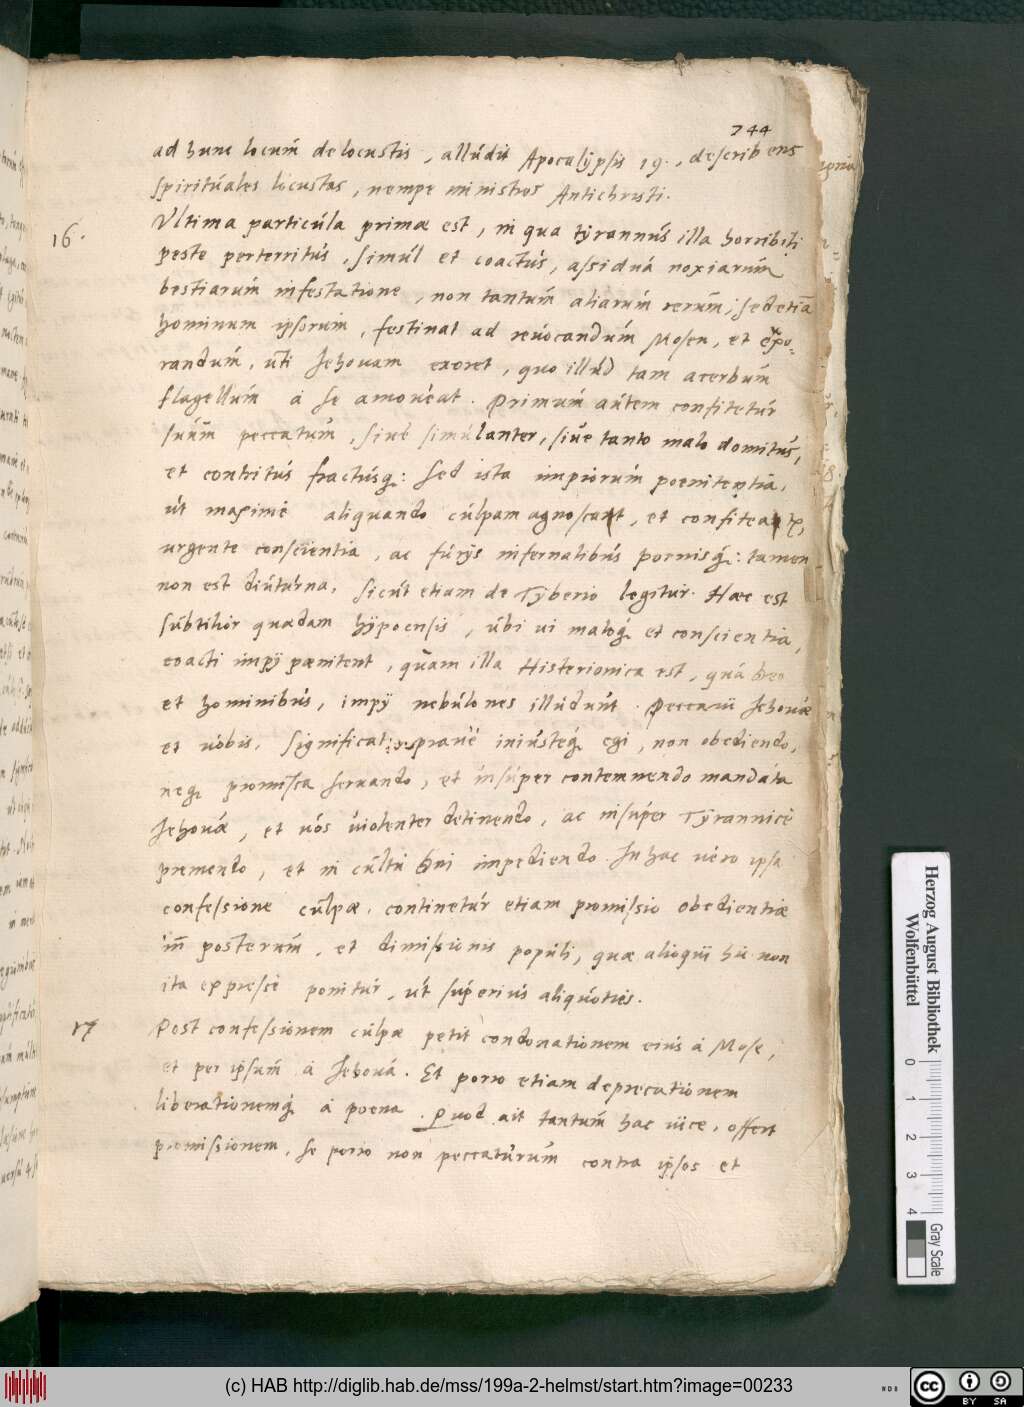 744
ad hunc locum de locustis, alludit Apocalÿpsis 19., describens
spirituales locustas, nempe ministros Antichristi.
16. Ultima particula primæ est, in qua tÿrannus illa horribili
peste perterritus, simul et coactus, assidua noxiarum
bestiarum infestatione, non tantum aliarum rerum, sed etiā
hominum ipsorum, festinat ad revocandum Mosen, et expo-
randum, uti Jehovam exoret, quo illud tam acerbum
flagellum à se amoveat. Primum autem confitetur
suum peccatum, sive simulanter, sive tanto malo domitus,
et contritus fractusq: Sed ista impiorum poenitentia,
ut maxime aliquando culpam agnoscant, et confitea
urgente conscientia, ac furijs infernalibus pornisq: tamen
non est diuturna, sicut etiam de Tÿberio legitur. Hæc est
subtilior quædam hÿpocrisis, ubi vi maloq et conscientia,
coacti impij pænitent, quam illa Histrionica est, qua Deo
et hominibus, impij nebulones illudunt. Peccavi Jehovæ
et vobis, significat, prave iniusteq egi, non obediendo,
neq promissa servando, et insuper contemnendo mandata
Jehovæ, et vos violenter detinendo, ac insuper Tÿrannicè
premendo, et in cultu Dni impediendo. In hac vero ipsa
confessione culpæ, continetur etiam promissio obedientiæ
in posterum, et dimissionis populi, quæ alioqui hic non
ita expresse ponitur, ut superius aliquoties.
17 Post confessionem culpæ petit condonationem eius à Mose,
et per ipsum à Jehova. Et porro etiam deprecationem
liberationemq à poena. Quod ait tantum hac vice, offert
promissionem, se porro non peccaturum contra ipsos et
Herzog August Bibliothek
Wolfenbüttel
0 1 2 3 4
Gray Scale
(c) HAB http://diglib.hab.de/mss/199a-2-helmst/start.htm?image=00233
cc BY SA